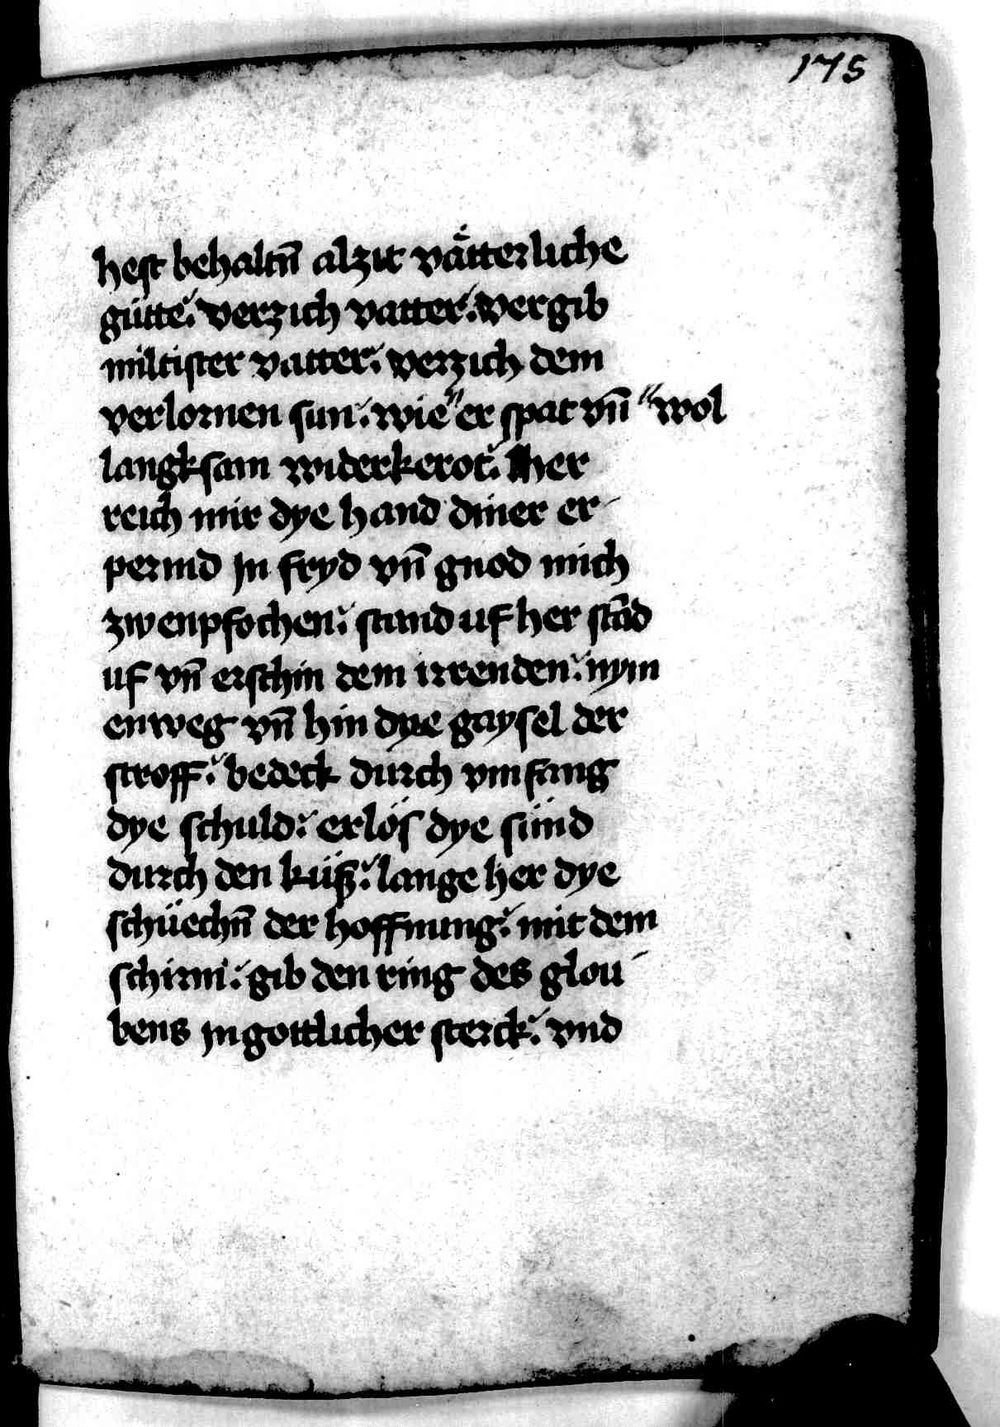 175
hest behaltn̄ alzit vätterliche
gütte. verzich vatter. vergib
miltister vatter. verzich dem
verlornen sun. wie er spat vn̄ wol
langksam widerkerot. her
reich mir dye hand diner er-
permd In fryd vn̄ gnod mich
zw enpfochen. stand uf her stād
uf vn̄ erschin dem irrenden. nym
enweg vn̄ hin dye gaysel der
stroff. bedeck durch vmfang
dye schuld. erlös dye sünd
durch den küß. lange her dye
schüechn̄ der hoffnung. mit dem
schirm. gib den ring des glou-
bens In gottlicher sterck. vnd